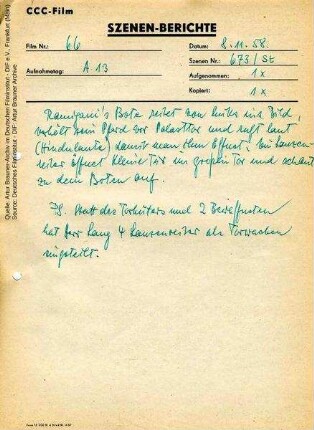 CCC-Film
SZENEN-BERICHTE
Film Nr.: 66
Datum: 8.11.58.
Szenen Nr.: 673/St
Aufnahmetag: A 13
Aufgenommen: 1x
Kopiert: 1x
Ramigani's Bote reitet von links ins Bild,
verhält sein Pferd vor Palasttor und ruft laut
(Hindulaute) damit man ihm öffnet. Ein Lanzen-
reiter öffnet kleine Tür im großen Tor und schaut
zu dem Boten auf.
PS. Statt des Torhüters und 2 Bewaffneten
hat Herr Lang 4 Lanzenreiter als Torwachen
eingeteilt.
Quelle: Artur Brauner-Archiv im Deutschen Filminstitut - DIF e.V., Frankfurt (Main)
Source: Deutsches Filminstitut - DIF Artur Brauner Archive